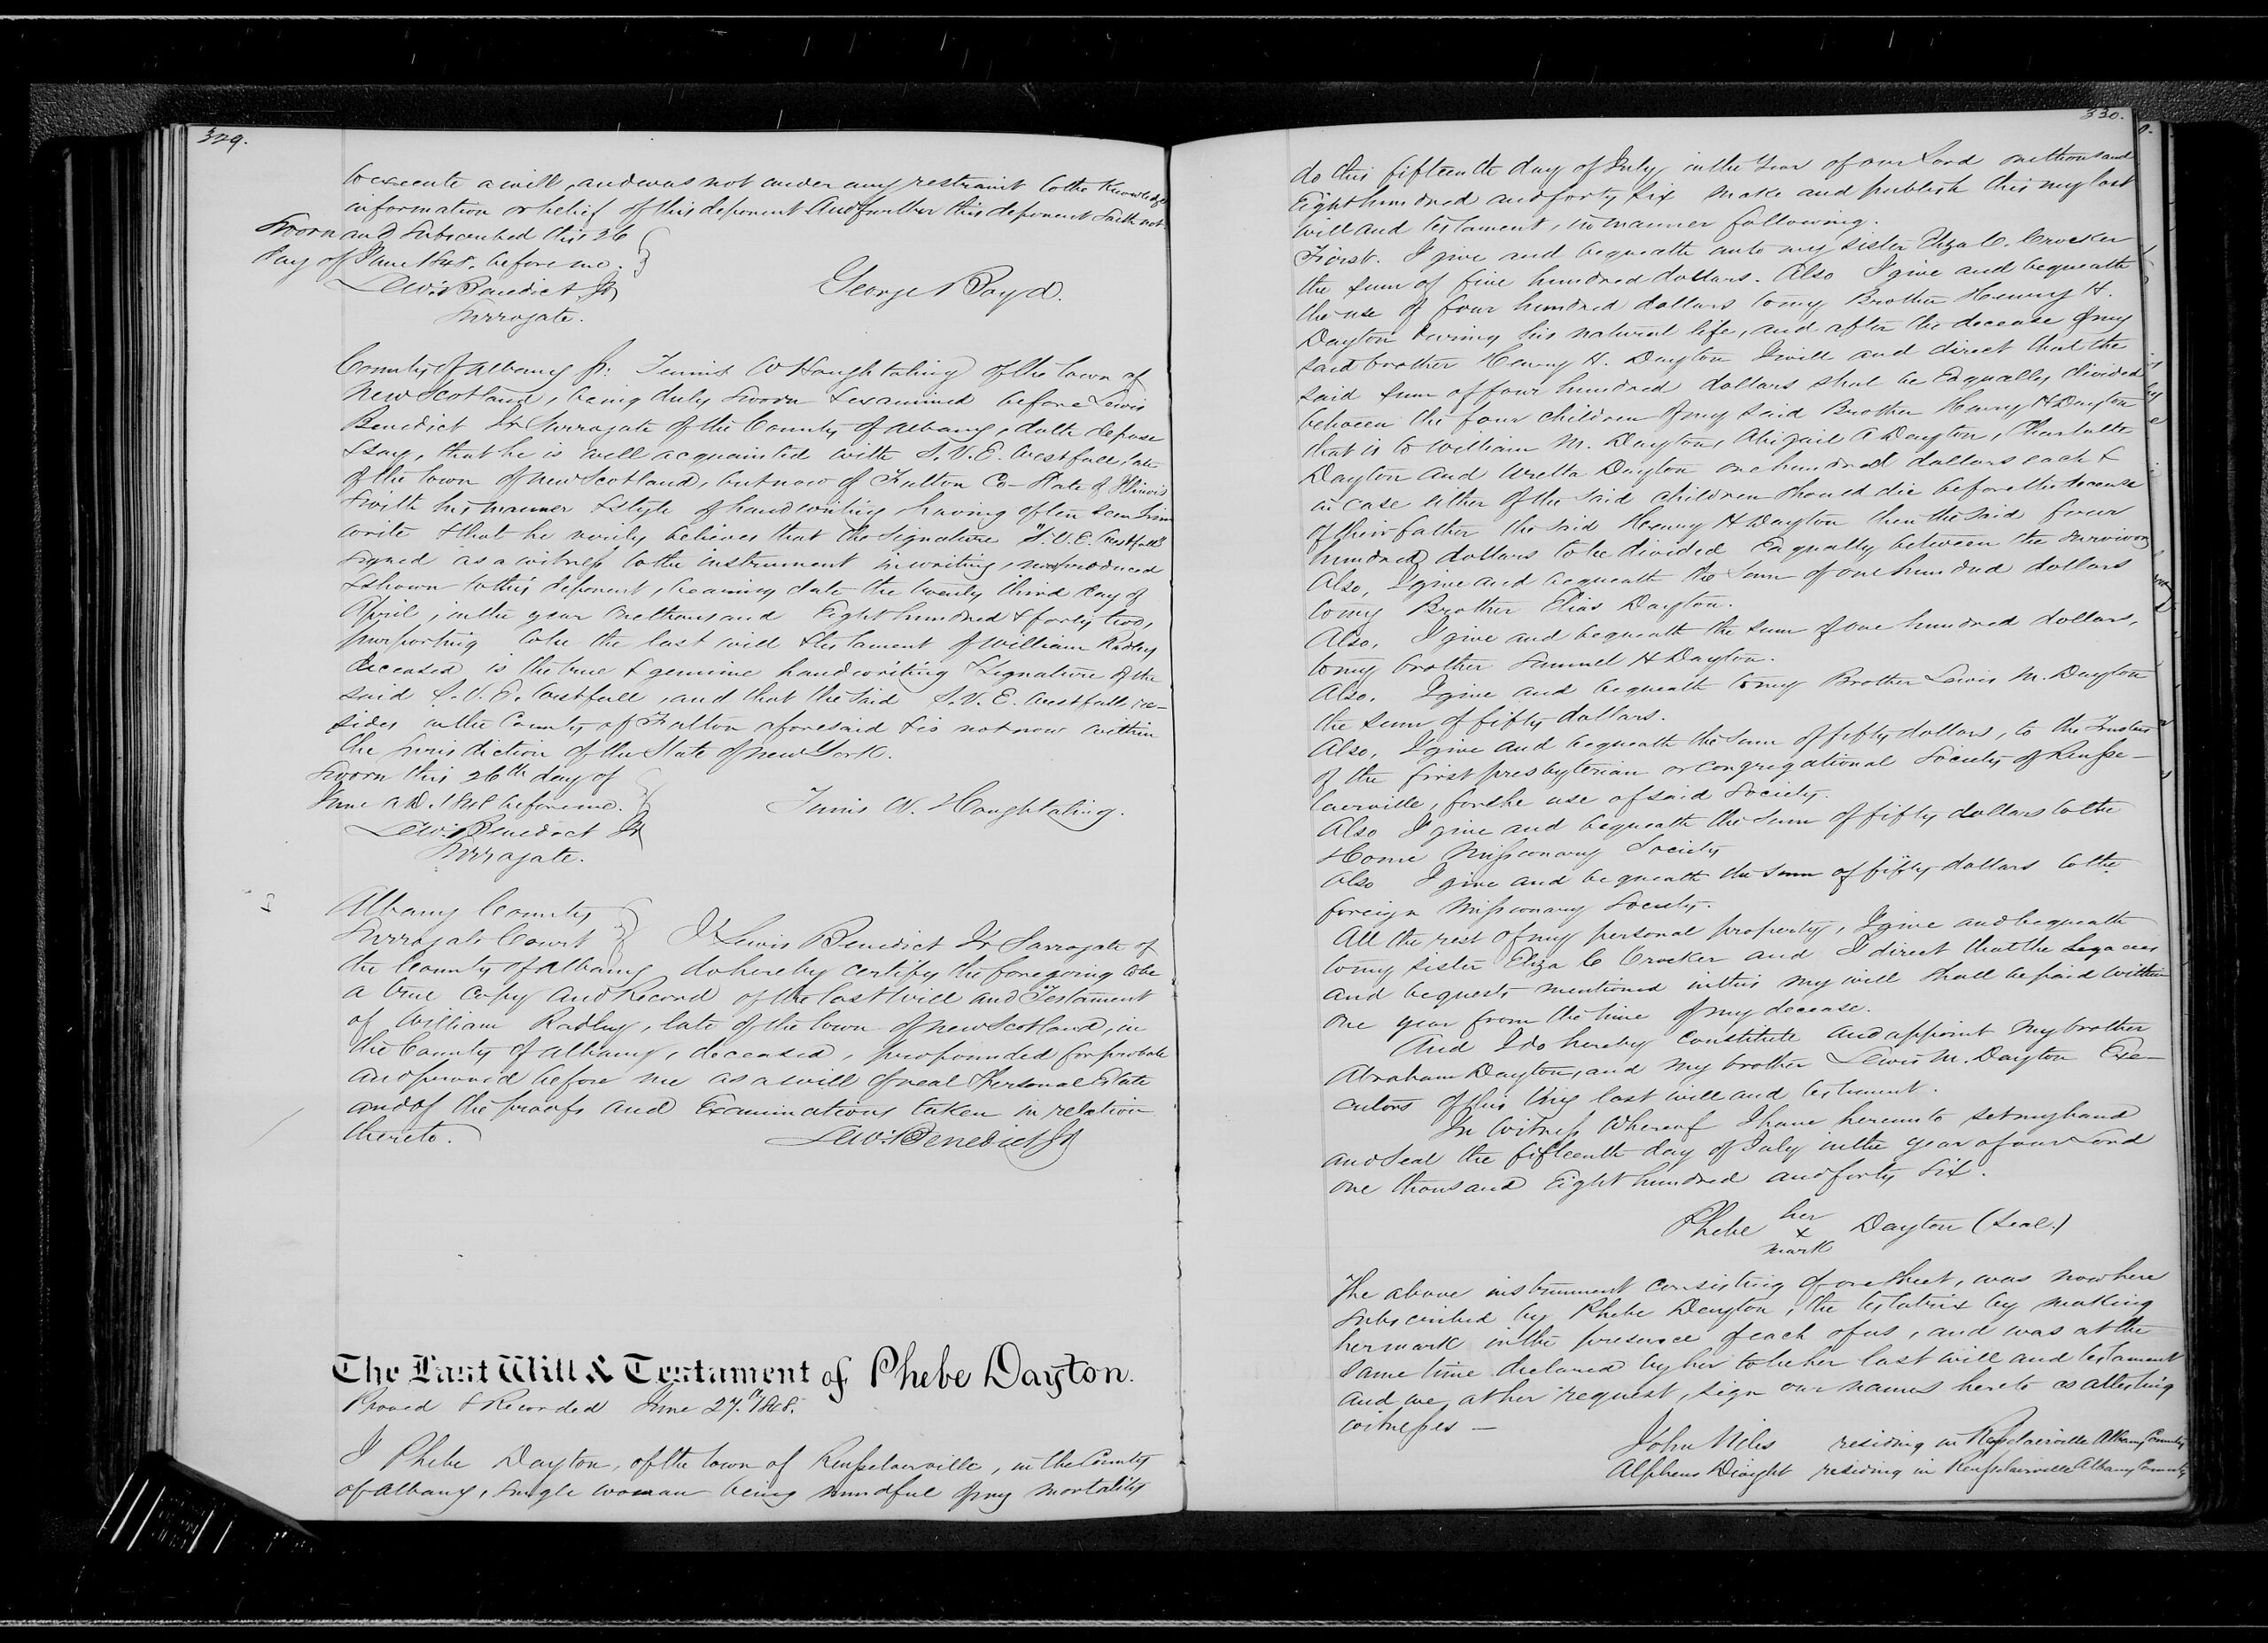 329.
to execute a will, and was not under any restraint to the knowledge
information or belief of this deponent And further this deponent saith not.
Sworn and Subscribed this 26
day of June 1848. before me.
Lewis Benedict Jr
Surrogate.
George Boyd.
County of Albany ss: Teunis W Houghtaling of the town of
New Scotland, being duly sworn & examined before Lewis
Benedict Jr Surrogate of the County of Albany, doth depose
& say, that he is well acquainted with S. V. E. Westfall, late
of the town of New Scotland, but now of Fulton Co- State of Illinois
& with his manner & style of handwriting having often seen him
write & that he verily believes that the signature "S. V. E. Westfall"
signed as a witness to the instrument in writing, now produced
& shown to this deponent, bearing date the twenty third day of
April, in the year one thousand Eight hundred & forty two,
purporting to be the last will & testament of William Radley
deceased is the true & genuine handwriting & signature of the
said S. V. E. Westfall, and that the said S. V. E. Westfall re-
sides in the County of Fulton aforesaid & is not now within
the jurisdiction of the State of New York.
Sworn this 26th day of
June A D. 1848 before me.
Lewis Benedict Jr
Surrogate.
Teunis W. Houghtaling.
Albany County
Surrogate Court
I Lewis Benedict Jr Surrogate of
the County of Albany do hereby certify the foregoing to be
a true copy and Record of the last Will and Testament
of William Radley, late of the town of New Scotland, in
the County of Albany, deceased, propounded for probate
and proved before me as a will of real & personal Estate
and of the proofs and Examinations taken in relation
thereto.
Lewis Benedict Jr
The Last Will & Testament of Phebe Dayton.
Proved & Recorded June 27. 1848.
I Phebe Dayton, of the town of Rensselaerville, in the County
of Albany, single woman being mindful of my mortality
330.
do this fifteenth day of July in the Year of our Lord one thousand
Eight hundred and forty six make and publish this my last
will and testament, in manner following.
First. I give and bequeath unto my sister Eliza C. Crocker
the sum of five hundred dollars. Also I give and bequeath
the use of four hundred dollars to my Brother Henry H.
Dayton during his natural life, and after the decease of my
said brother Henry H. Dayton I will and direct that the
said sum of four hundred dollars shal be Equally divided
between the four children of my said Brother Henry H Dayton
that is to William M. Dayton, Abigail A Dayton, Charlotte
Dayton and Uretta Dayton one hundred dollars each &
in case either of the said children should die before the decease
of their father the said Henry H Dayton then the said four
hundred dollars to be divided Equally between the survivors
Also, I give and bequeath the sum of one hundred dollars
to my Brother Elias Dayton.
Also, I give and bequeath the sum of one hundred dollars,
to my brother Samuel H Dayton.
Also, I give and bequeath to my Brother Lewis M. Dayton
the sum of fifty dollars.
Also, I give and bequeath the sum of fifty dollars, to the Trustees
of the first presbyterian or congregational Society of Rensse-
laerville, for the use of said Society.
Also I give and bequeath the sum of fifty dollars to the
Home Missionary Society
Also I give and bequeath the sum of fifty dollars to the
foreign Missionary Society.
All the rest of my personal property, I give and bequeath
to my sister Eliza C Crocker and I direct that the Legacies
and bequests mentioned in this my will shall be paid within
one year from the time of my decease.
And I do hereby constitute and appoint my brother
Abraham Dayton, and my brother Lewis M. Dayton Exe-
cutors of this my last will and testament.
In Witness Whereof I have hereunto set my hand
and seal the fifteenth day of July in the year of our Lord
one thousand Eight hundred and forty six.
Phebe her x mark Dayton (Seal.)
The above instrument consisting of one sheet, was now here
subscribed by Phebe Dayton, the testatrix by making
her mark in the presence of each of us, and was at the
same time declared by her to be her last will and testament
and we, at her request, sign our names hereto as attesting
witnesses —
John Niles residing in Rensselaerville Albany County
Alpheus Dwight residing in Rensselaerville Albany County